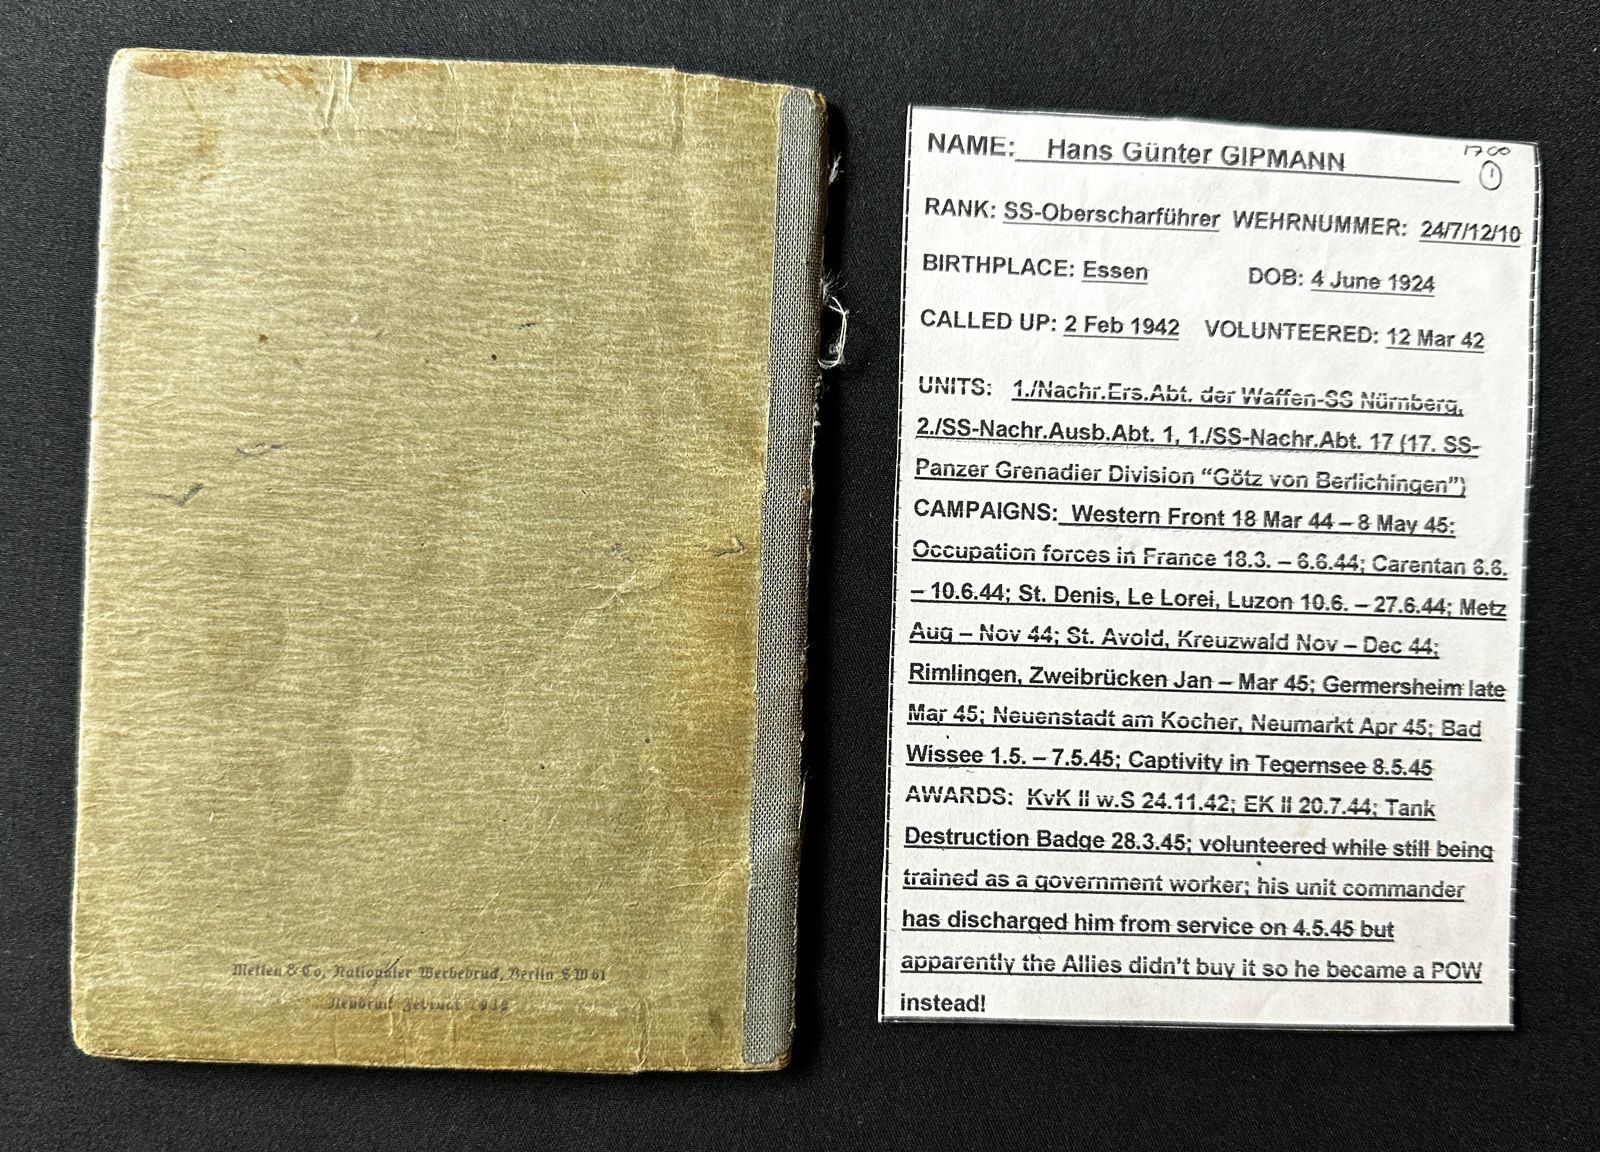 Metten & Co, Nationaler Werbedruck, Berlin SW 61
Neudruck Februar
NAME: Hans Günter GIPMANN
1700
1
RANK: SS-Oberscharführer WEHRNUMMER: 24/7/12/10
BIRTHPLACE: Essen DOB: 4 June 1924
CALLED UP: 2 Feb 1942 VOLUNTEERED: 12 Mar 42
UNITS: 1./Nachr.Ers.Abt. der Waffen-SS Nürnberg,
2./SS-Nachr.Ausb.Abt. 1, 1./SS-Nachr.Abt. 17 (17. SS-
Panzer Grenadier Division “Götz von Berlichingen”)
CAMPAIGNS: Western Front 18 Mar 44 – 8 May 45:
Occupation forces in France 18.3. – 6.6.44; Carentan 6.6.
– 10.6.44; St. Denis, Le Lorei, Luzon 10.6. – 27.6.44; Metz
Aug – Nov 44; St. Avold, Kreuzwald Nov – Dec 44;
Rimlingen, Zweibrücken Jan – Mar 45; Germersheim late
Mar 45; Neuenstadt am Kocher, Neumarkt Apr 45; Bad
Wissee 1.5. – 7.5.45; Captivity in Tegernsee 8.5.45
AWARDS: KvK II w.S 24.11.42; EK II 20.7.44; Tank
Destruction Badge 28.3.45; volunteered while still being
trained as a government worker; his unit commander
has discharged him from service on 4.5.45 but
apparently the Allies didn't buy it so he became a POW
instead!